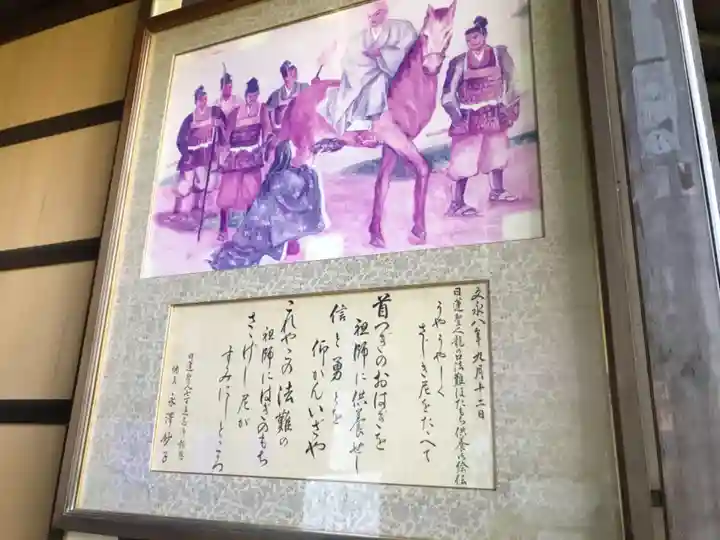 文永八年九月十二日
日蓮聖人龍の口法難ぼたもち供養の絵伝
うやうやしく
さじき尼をたへて
首つぎのおはぎを
祖師に供養せし
信と勇とを
仰がんいざや
これやこの法難の
祖師にはぎのもち
さゝげし尼が
すみにしところ
日蓮聖人七百